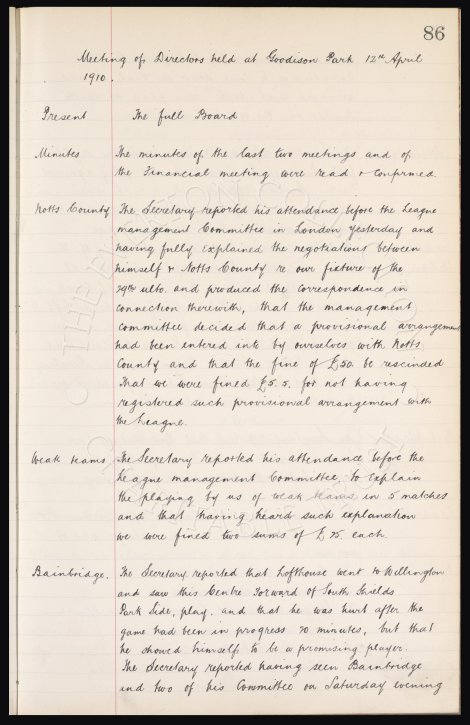 86
Meeting of Directors held at Goodison Park 12th April
1910.
Present The full Board
Minutes The minutes of the last two meetings and of
the Financial meeting were read & confirmed.
Notts County The Secretary reported his attendance before the League
management Committee in London yesterday and
having fully explained the negotiations between
himself & Notts County re our fixture of the
29th ulto. and produced the correspondence in
connection therewith, that the management
Committee decided that a provisional arrangement
had been entered into by ourselves with Notts
County and that the fine of £50 be rescinded
That we were fined £5.5. for not having
registered such provisional arrangement with
the League.
Weak teams The Secretary reported his attendance before the
League management Committee, to explain
the playing by us of weak teams in 5 matches
and that having heard such explanation
we were fined two sums of £25 each.
Bainbridge. The Secretary reported that Lofthouse went to Willington
and saw this Centre Forward of South Shields
Park Side, play, and that he was hurt after the
game had been in progress 20 minutes, but that
he showed himself to be a promising player.
The Secretary reported having seen Bainbridge
and two of his Committee on Saturday evening